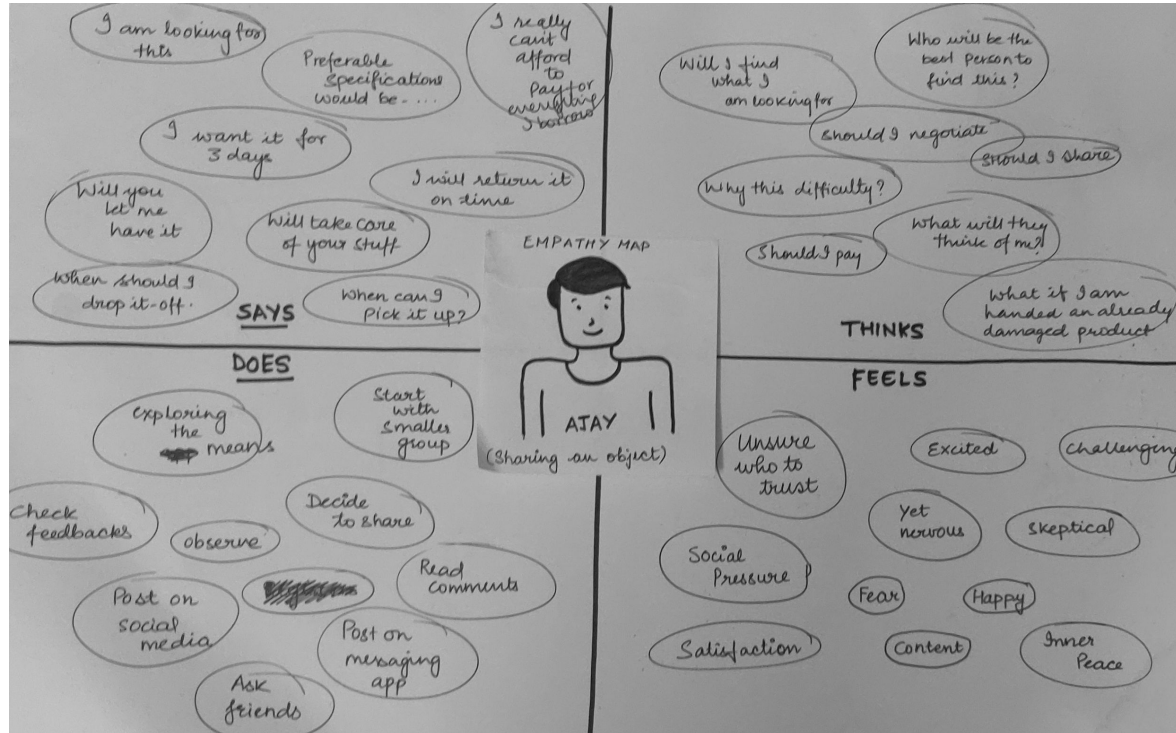 I am looking for
this
Preferable
specifications
would be-....
I really
can't
afford
to
pay for
everything
I borrow
I want it for
3 days
I will return it
on time
Will you
let me
have it
Will take care
of your stuff
When should I
drop it-off.
When can I
Pick it up?
SAYS
Will I find
what I
am looking for
Who will be the
best person to
find this?
Should I negotiate
Should I share
Why this difficulty?
What will they
think of me?
Should I pay
What if I am
handed an already
damaged product
THINKS
EMPATHY MAP
AJAY
(Sharing an object)
DOES
exploring
the
means
Start
with
smaller
group
Check
feedbacks
observe
Decide
to share
Read
comments
Post on
social
media
Post on
messaging
app
Ask
friends
FEELS
Unsure
who to
trust
Excited
Challenging
Yet
nervous
Skeptical
Social
Pressure
Fear
Happy
Satisfaction
Content
Inner
Peace